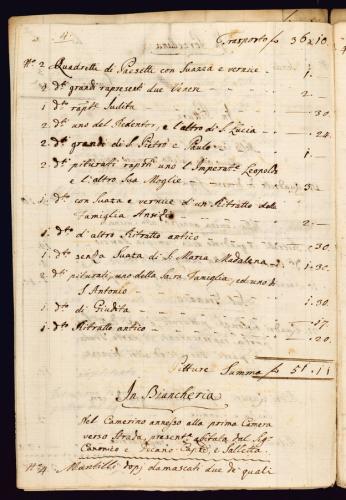 4. Trasporto f 36 x 10
N.º 2. Quadretti di Paesetti con Suaza e vernice - 1. -
dti grandi rapresti due Veneri - 2. -
1 dto raptte Judita - . 30.
2 dti uno del Redentor, e l'altro di S. Lucia - . 24.
2. dti grandi di S. Pietro e Paulo - 1. -
2. dti pitturati raptti uno l'Imperatr. Leopoldo
e l'altro Sua Moglie - 3.
dto con Suata e vernice d'un Ritratto della
Famiglia - 2. -
1. dto d'altro Ritratto antico - . 30.
1. dto senza Suata di S. Maria Madalena - 1. 30.
2 dti pitturati, uno della Sacra Famiglia, ed uno di
S. Antonio - 1. 30.
1. dto di Giudita - . 17.
1. dto Ritratto antico - . 20.
Pitture Summa f 51. 11
In Biancheria
Nel Camerino annesso alla prima Camera
verso Strada, presentte abitata dal Sigr
Canonico e Decano
Nº 4. Mantilli dopj damascati due de' quali